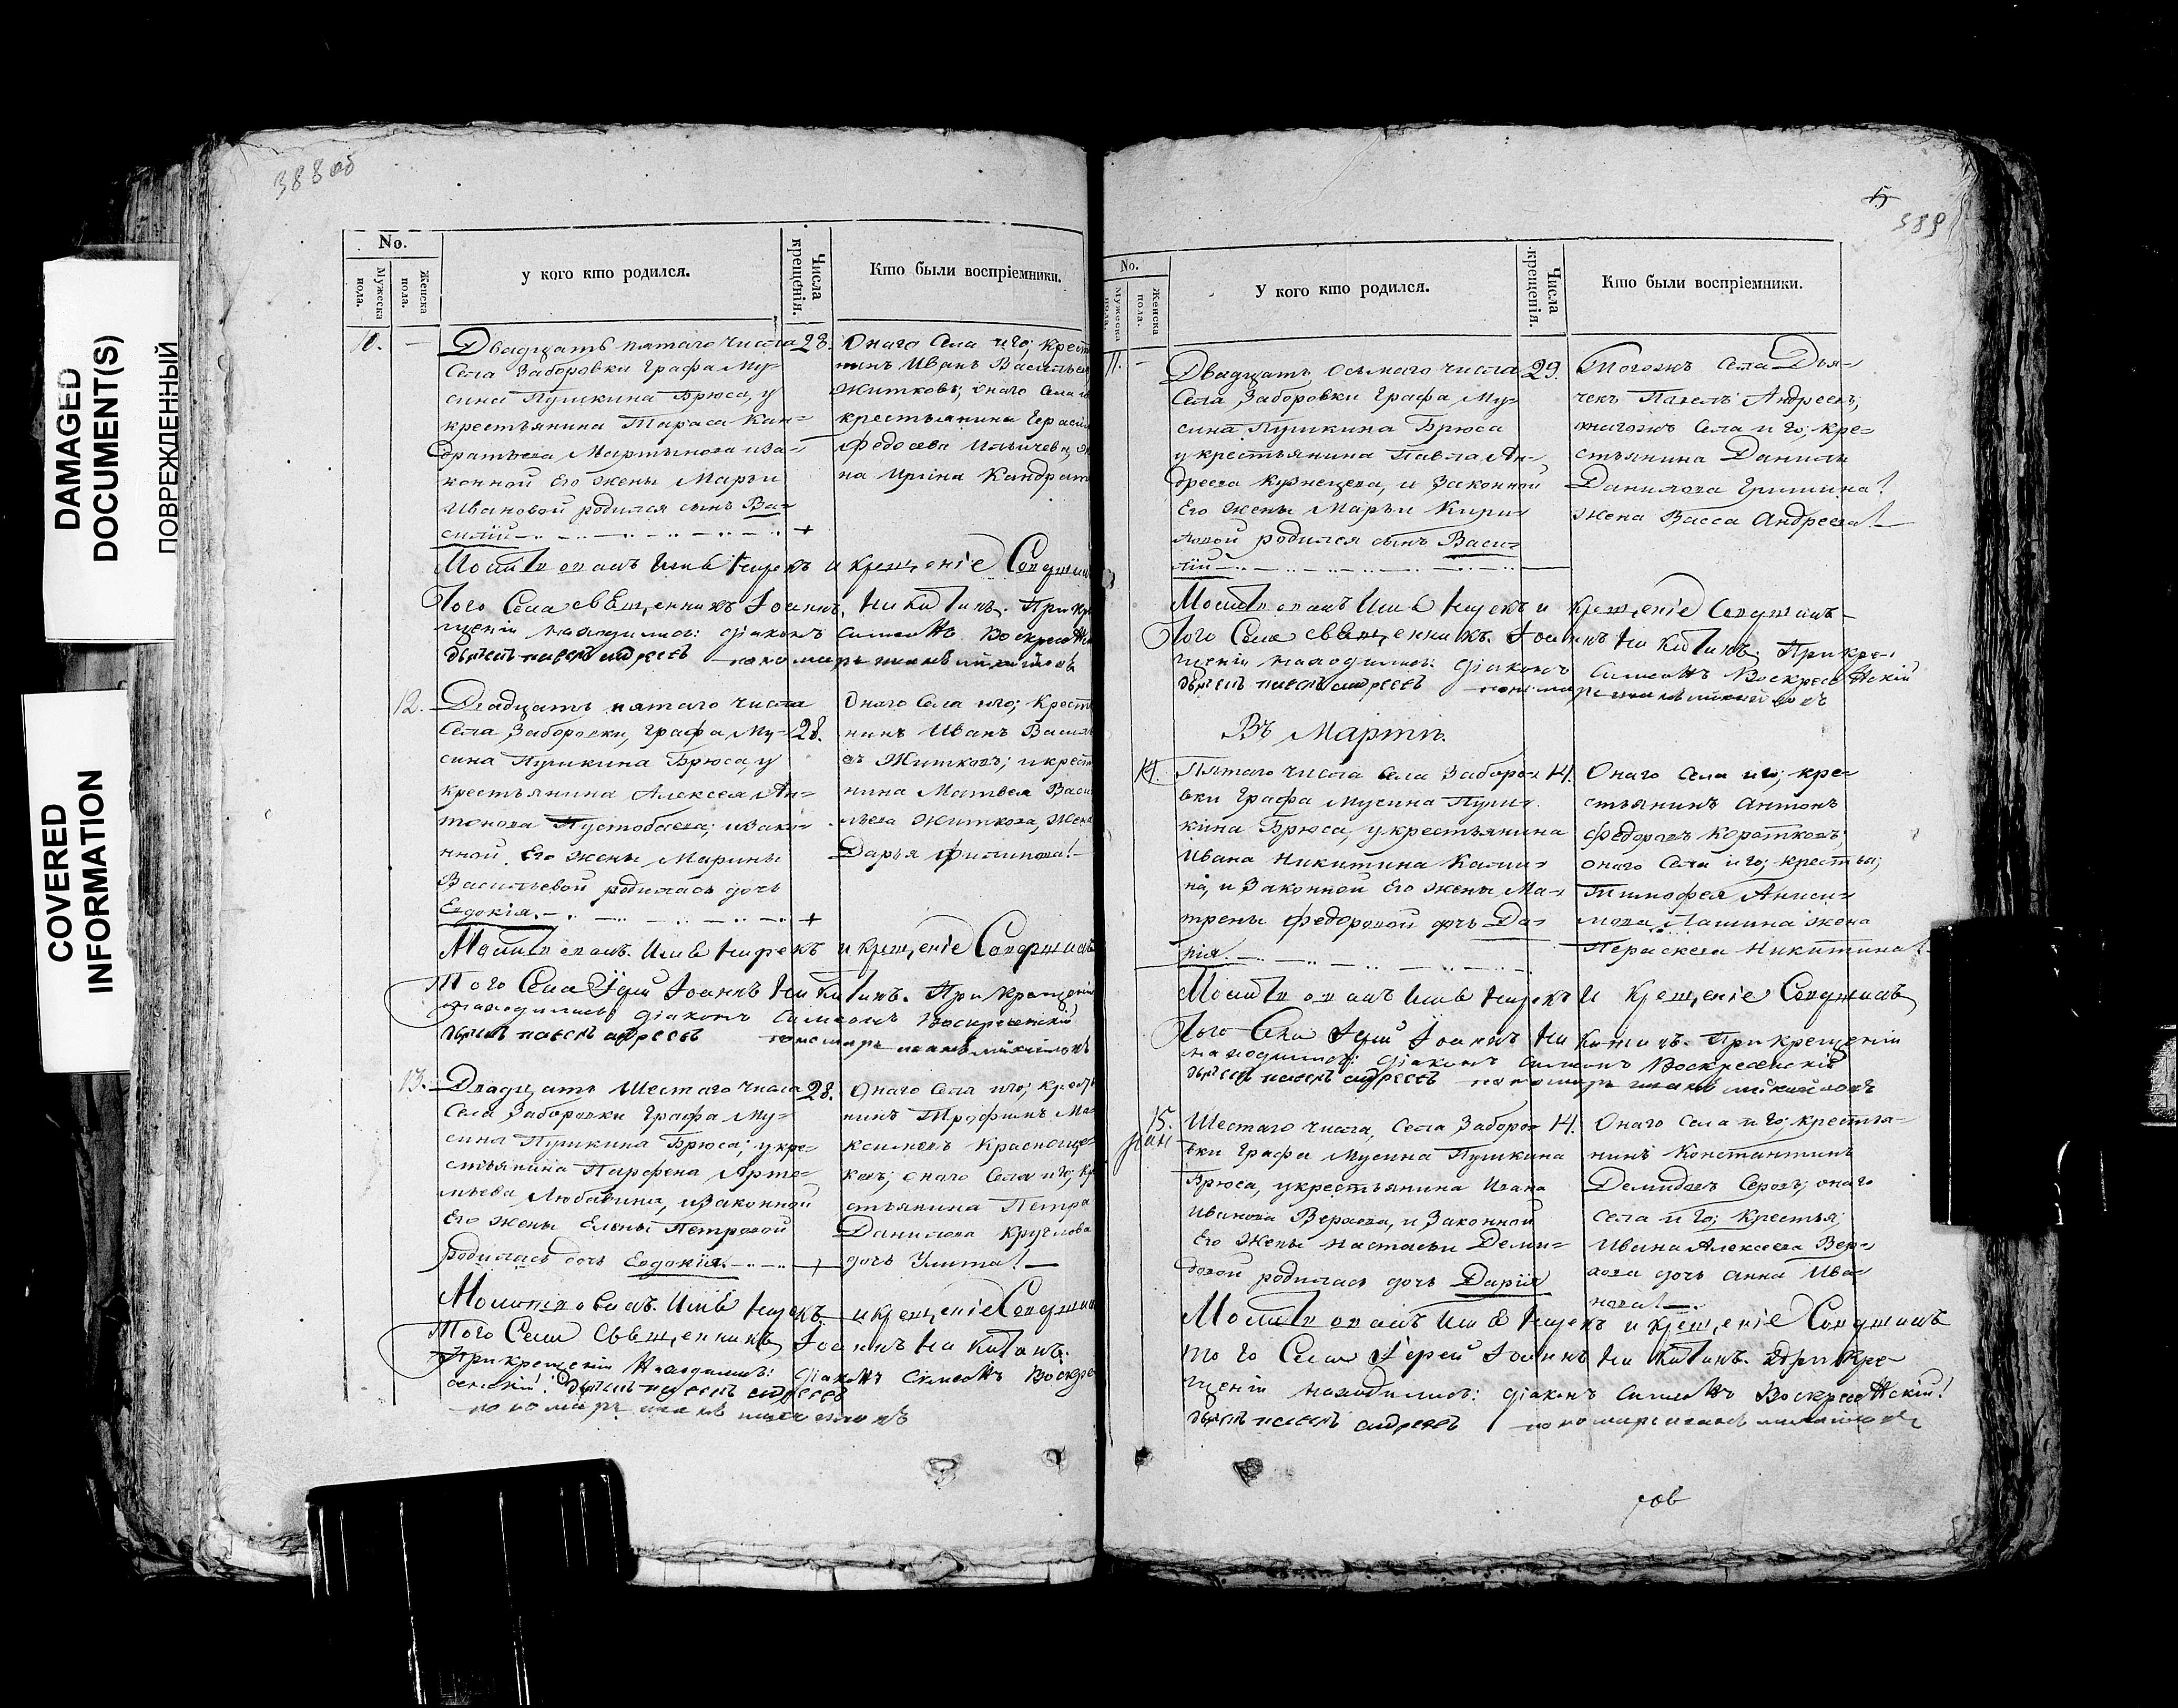 DAMAGED
DOCUMENT(S)
ПОВРЕЖДЕННЫЙ
COVERED
INFORMATION
388 об
No.
Мужеска пола.
Женска пола.
у кого кто родился.
Числа крещенія.
Кто были воспріемники.
10. —
Двадцать пятаго числа
Села Заборовки Графа Му-
сина Пушкина Брюса, у
крестьянина Тараса Кан-
дратьева Мартынова иза-
конной Его жены Марьи
Ивановой родился сынъ Ва-
силій
28.
Онаго Села иго; крест
нинъ Иванъ Василье
Житковъ; онаго Села и
крестьянина Гераси
Федосева Ильичева,
на Ирина Кандрат
Молитвовалъ Имѣ нарекъ и крещеніе Соверши
того Села свѣщенникъ Іоаннъ Никитинъ. При кре
щеніи находились: діаконъ Симеонъ Воскресен
дьячекъ павелъ андреевъ пономарь иванъ михайловъ
12.
Двадцать пятаго числа
Села Заборовки, Графа Му-
сина Пушкина Брюса, у
крестьянина Алексея Ан-
тонова Пустобаева; изако-
нной Его жены Марины
Васильевой родилась дочь
Евдокія.
28.
Онаго Села иго; Крест
нинъ Иванъ Василь
въ Житковъ; и крест
нина Матвея Васи
льева Житкова, жена
Дарья Филипова!
Молитвовалъ Имѣ нарекъ и крещеніе Совершилъ
того Села Іерей Іоаннъ Никитинъ. При Крещеніи
находились діаконъ Симеонъ Воскресенскій
дьячекъ павелъ андреевъ пономарь иванъ михайловъ
13.
Двадцать Шестаго числа
Села Заборовки Графа Му-
сина Пушкина Брюса; у кре-
стьянина Парфена Арте-
мьева Любавина, изаконной
Его жены Елены Петровой
родилась дочь Евдокія.
28.
Онаго Села иго; крестья
нинъ Трофимъ Ма-
ксимовъ Краснощо-
ковъ; онаго Села иго; кре
стьянина Петра
Данилова Круглова
дочь Улита!
Молитвовалъ Имѣ нарекъ и крещеніе Соверши
того Села Свѣщенникъ Іоаннъ Никитинъ.
При крещеніи Находились: діаконъ Симеонъ Воскре
сенскій! дьячекъ павелъ андреевъ
пономарь иванъ михайловъ
5
389
No.
Мужеска пола.
Женска пола.
У кого кто родился.
Числа крещенія.
Кто были воспріемники.
11. —
Двадцать осьмаго числа
Села Заборовки Графа Му-
сина Пушкина Брюса
у крестьянина Павла Ан-
дреева Кузнецова, и Законной
Его жены Марьи Кири-
ловой родился сынъ Васи-
лій
29.
Тогожъ Села Дья-
чекъ Павелъ Андреевъ;
тогожъ Села иго; кре-
стьянина Данилы
Данилова Гришина!
жена Васса Андреева!
Молитвовалъ Имѣ Нарекъ и Крещеніе Совершилъ
того Села свѣщенникъ Іоаннъ Никитинъ. При кре-
щеніи находились: діаконъ Симеонъ Воскресенскій
дьячекъ павелъ андреевъ пономарь иванъ михайловъ
Въ Мартѣ.
14.
Пятаго числа Села Заборо-
вки Графа Мусина Пуш-
кина Брюса, у крестьянина
Ивана Никитина Кали-
на, и Законной Его жены Ма-
трены Федоровой дочь Да-
рія.
14.
Онаго Села иго; кре-
стьянинъ Антонъ
Федоровъ Коротковъ;
онаго Села иго; крестья;
Тимофея Аниси-
мова Лашина жена
Пераскева Никитина!
Молитвовалъ Имѣ Нарекъ И Крещеніе Совершилъ
того Села Іерей Іоаннъ Никитинъ. При крещеніи
находились: діаконъ Симеонъ Воскресенскій
дьячекъ павелъ андреевъ пономарь иванъ михайловъ
15.
Шестаго числа, Села Заборо
вки Графа Мусина Пушкина
Брюса, у крестьянина Ивана
Иванова Вераева, и Законной
Его жены Настасьи Деми-
довой родилась дочь Дарія
14.
Онаго Села иго; крестья-
нинъ Константинъ
Демидовъ Серовъ; онаго
села иго; Крестья;
Ивана Алексеева Вер-
аева дочь Анна Ива-
нова!
Молитвовалъ Имѣ Нарекъ и крещеніе Совершилъ
того Села Іерей Іоаннъ Никитинъ. При Кре-
щеніи находились: діаконъ Симеонъ Воскресенскій!
дьячекъ павелъ андреевъ пономарь иванъ михайловъ